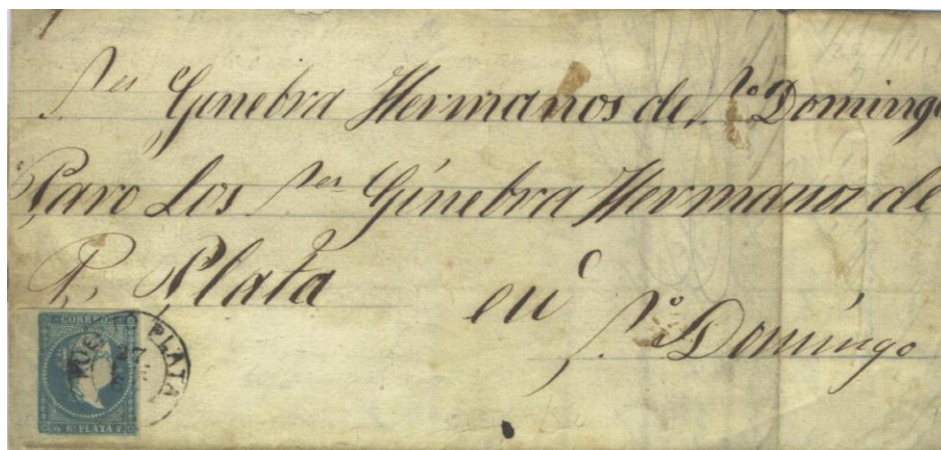 Sres Ginebra Hermanos de Sto Domingo
Para Los Sres Ginebra Hermanos de
P. Plata en
Sto Domingo
CORREOS
PUERTO PLATA
17
Rl PLATA F